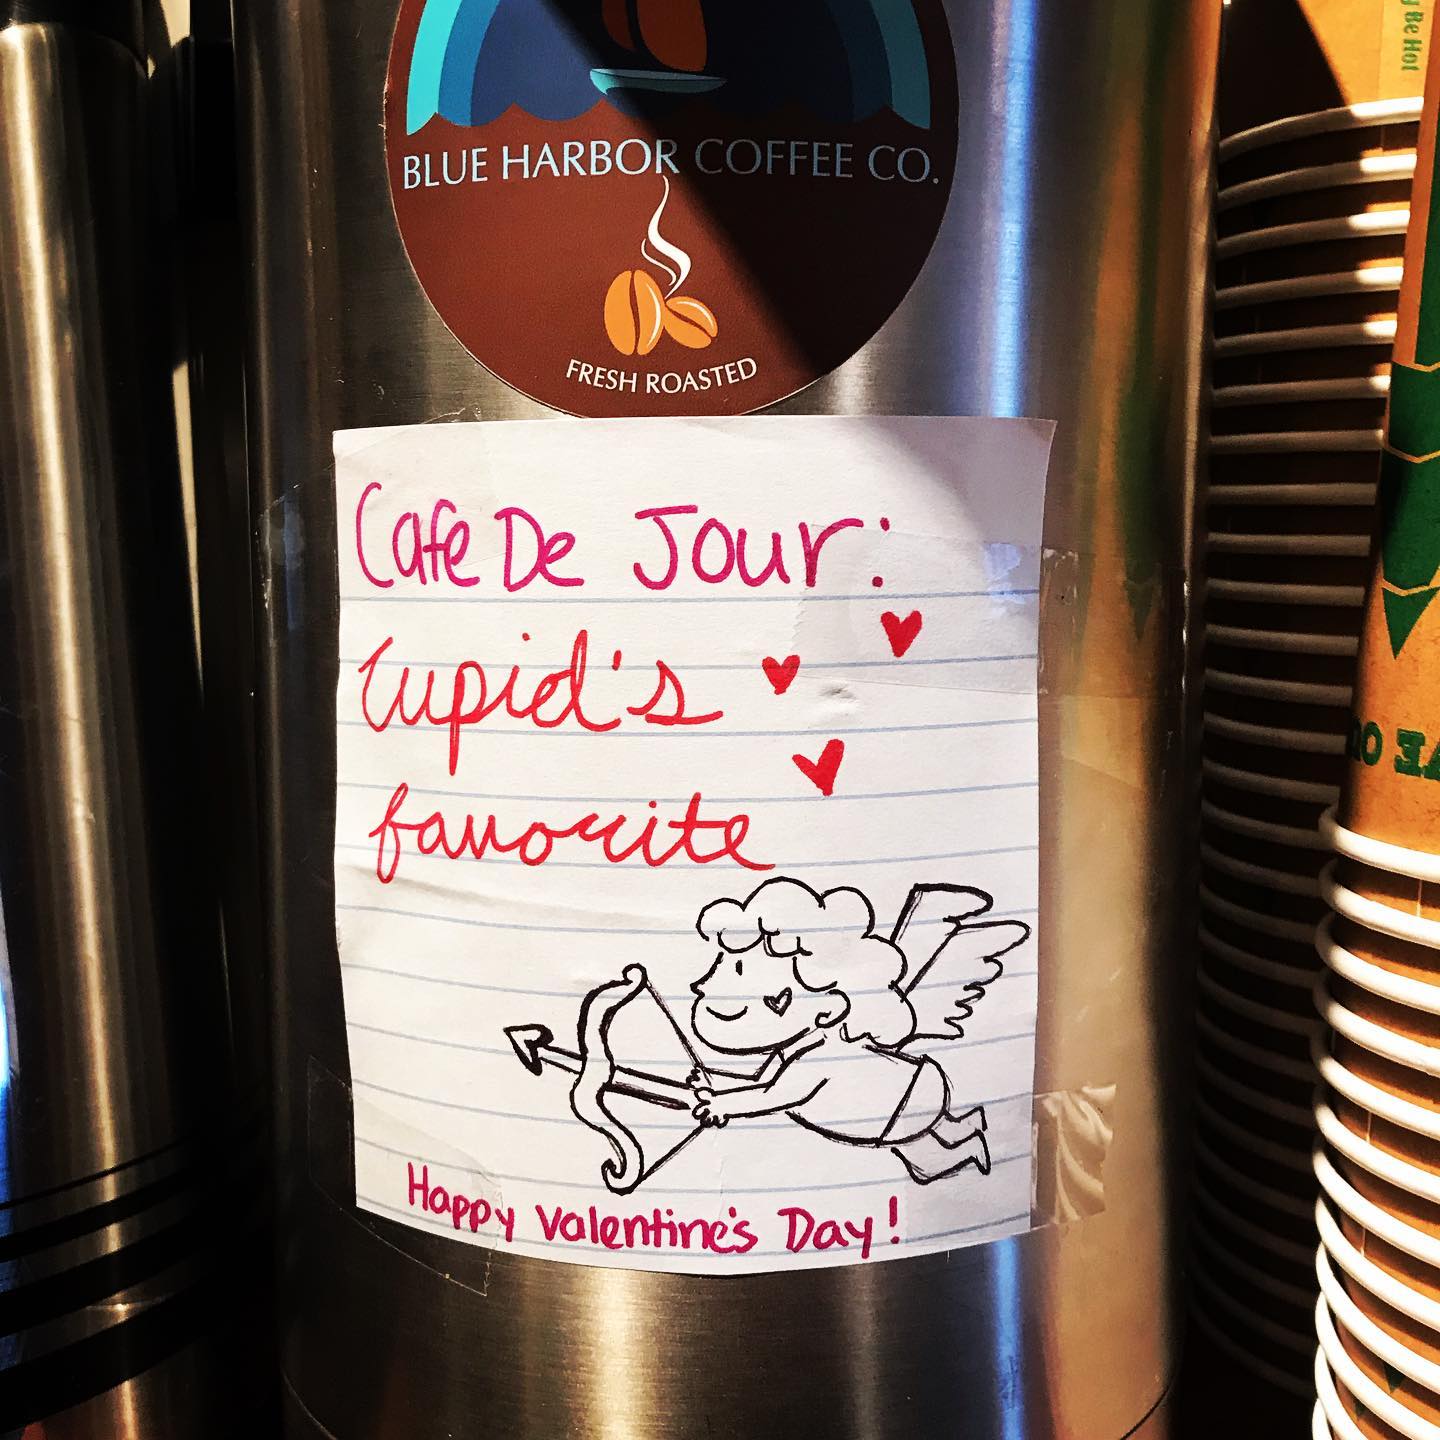 BLUE HARBOR COFFEE CO.
FRESH ROASTED
Cafe De Jour:
Cupid's
favorite
Happy Valentine's Day!
Be Hot